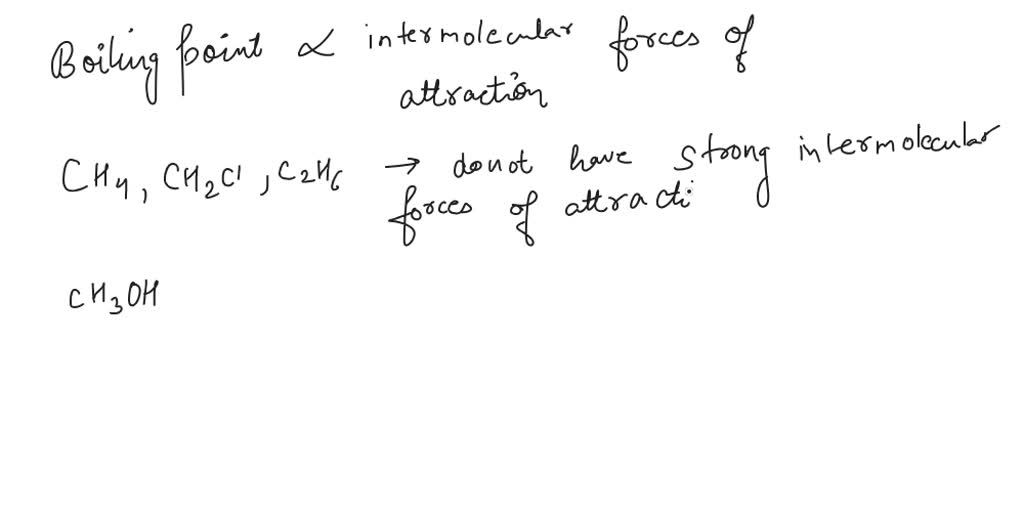 Boiling point ∝ intermolecular forces of
attraction
CH4, CH2Cl, C2H6 → donot have strong intermolecular
forces of attracti
CH3OH